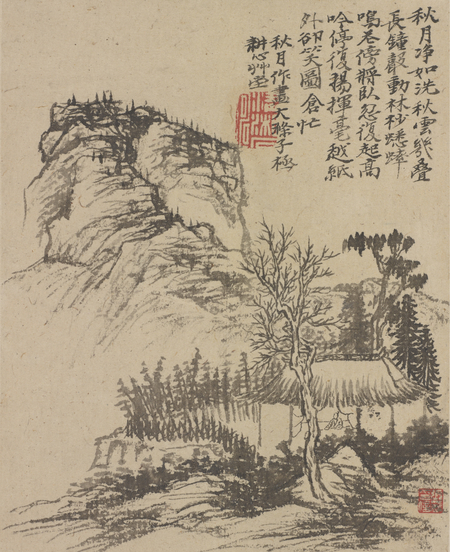 秋月净如洗秋雲幾疊
長鐘聲動林杪蟋蟀
鳴傍將臥忽復起高
吟停復揚揮毫越紙
外卻笑圖倉忙
秋月作畫大滌子極
耕心艸堂